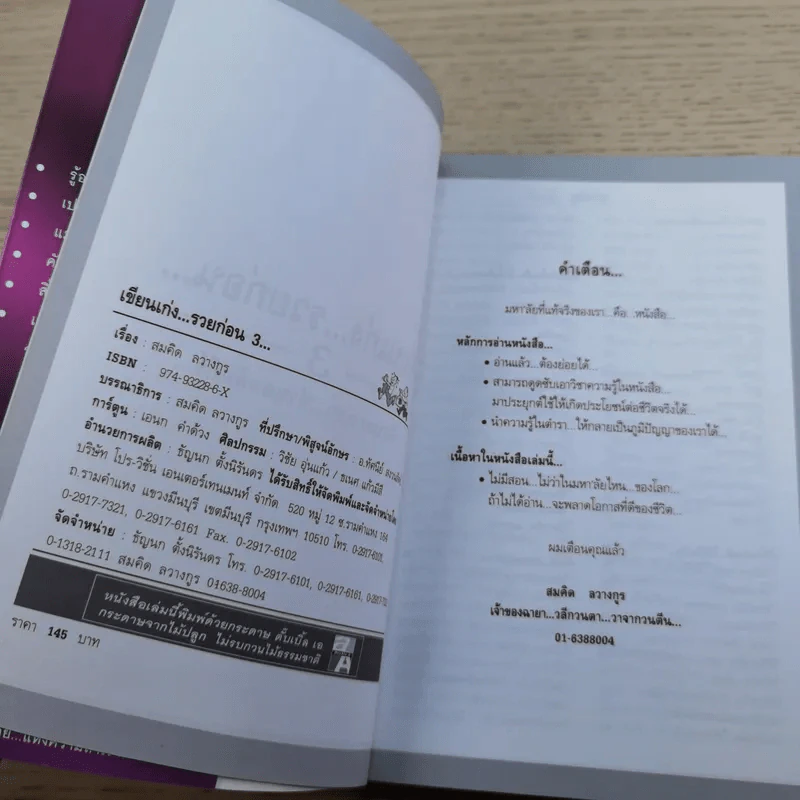 เขียนเก่ง...รวยก่อน 3...
เรื่อง : สมคิด ลวางกูร
ISBN : 974-93228-6-X
บรรณาธิการ : สมคิด ลวางกูร ที่ปรึกษา/พิสูจน์อักษร : อ.ทัศนีย์
การ์ตูน : เอนก คำด้วง ศิลปกรรม : วิชัย อุ่นแก้ว / ธเนศ แก้วมณี
อำนวยการผลิต : ธัญนก ตั้งนิรันดร ได้รับสิทธิ์ให้จัดพิมพ์และจัดจำหน่ายโดย
บริษัท โปร-วิชั่น เอนเตอร์เทนเมนท์ จำกัด 520 หมู่ 12 ซ.รามคำแหง
ถ.รามคำแหง แขวงมีนบุรี เขตมีนบุรี กรุงเทพฯ 10510 โทร. 0-2917-6101,
0-2917-7321, 0-2917-6161 Fax. 0-2917-6102
จัดจำหน่าย : ธัญนก ตั้งนิรันดร โทร. 0-2917-6101, 0-2917-6161,
0-1318-2111 สมคิด ลวางกูร 01-638-8004
หนังสือเล่มนี้พิมพ์ด้วยกระดาษ ดั๊บเบิ้ล เอ
กระดาษจากไม้ปลูก ไม่รบกวนไม้ธรรมชาติ
A
ราคา 145 บาท
คำเตือน...
มหา'ลัยที่แท้จริงของเรา...คือ...หนังสือ...
หลักการอ่านหนังสือ...
• อ่านแล้ว...ต้องย่อยได้...
• สามารถดูดซับเอาวิชาความรู้ในหนังสือ...
มาประยุกต์ใช้ให้เกิดประโยชน์ต่อชีวิตจริงได้...
• นำความรู้ในตำรา...ให้กลายเป็นภูมิปัญญาของเราได้...
เนื้อหาในหนังสือเล่มนี้...
• ไม่มีสอน...ไม่ว่าในมหา'ลัยไหน...ของโลก...
ถ้าไม่ได้อ่าน...จะพลาดโอกาสที่ดีของชีวิต...
ผมเตือนคุณแล้ว
สมคิด ลวางกูร
เจ้าของฉายา...วลีกวนตา...วาจากวนตีน...
01-6388004